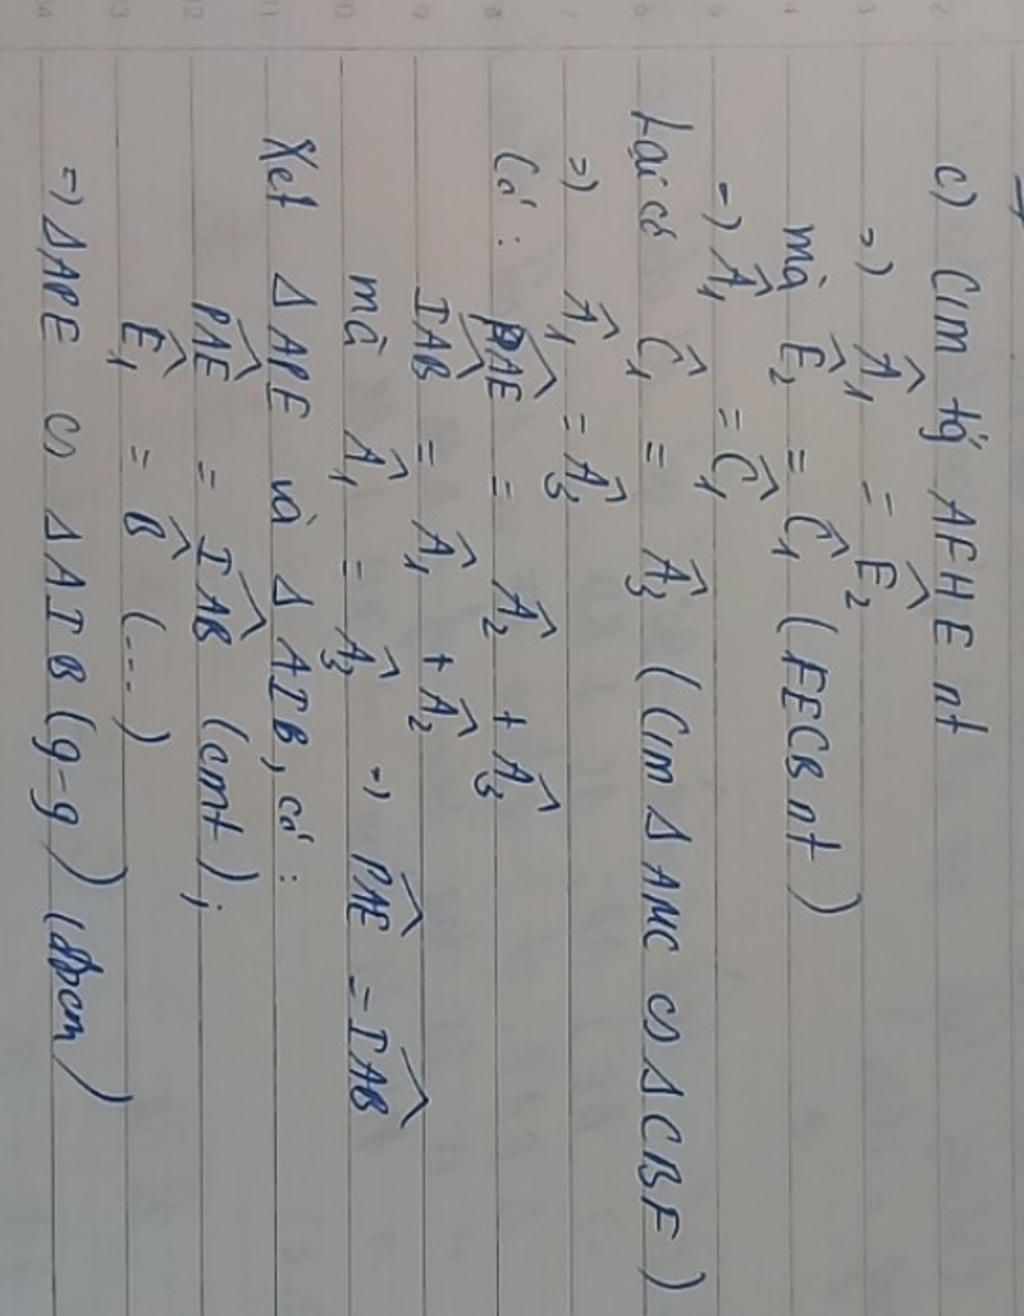 c) C/m tǵ AFHE nt
=) Â₁ = Ê₂
mà Ê₂ = Ĉ₁ (FECB nt)
=) Â₁ = Ĉ₁
Lại có Ĉ₁ = Â₃ (C/m Δ AMC ᔕ Δ CBF)
=) Â₁ = Â₃
Có: PAE^ = Â₂ + Â₃
IAB^ = Â₁ + Â₂
mà Â₁ = Â₃ =) PAE^ = IAB^
Xét Δ APE và Δ AIB, có:
PAE^ = IAB^ (cmt);
Ê₁ = B̂ (...)
=) ΔAPE ᔕ ΔAIB (g-g) (đpcm)